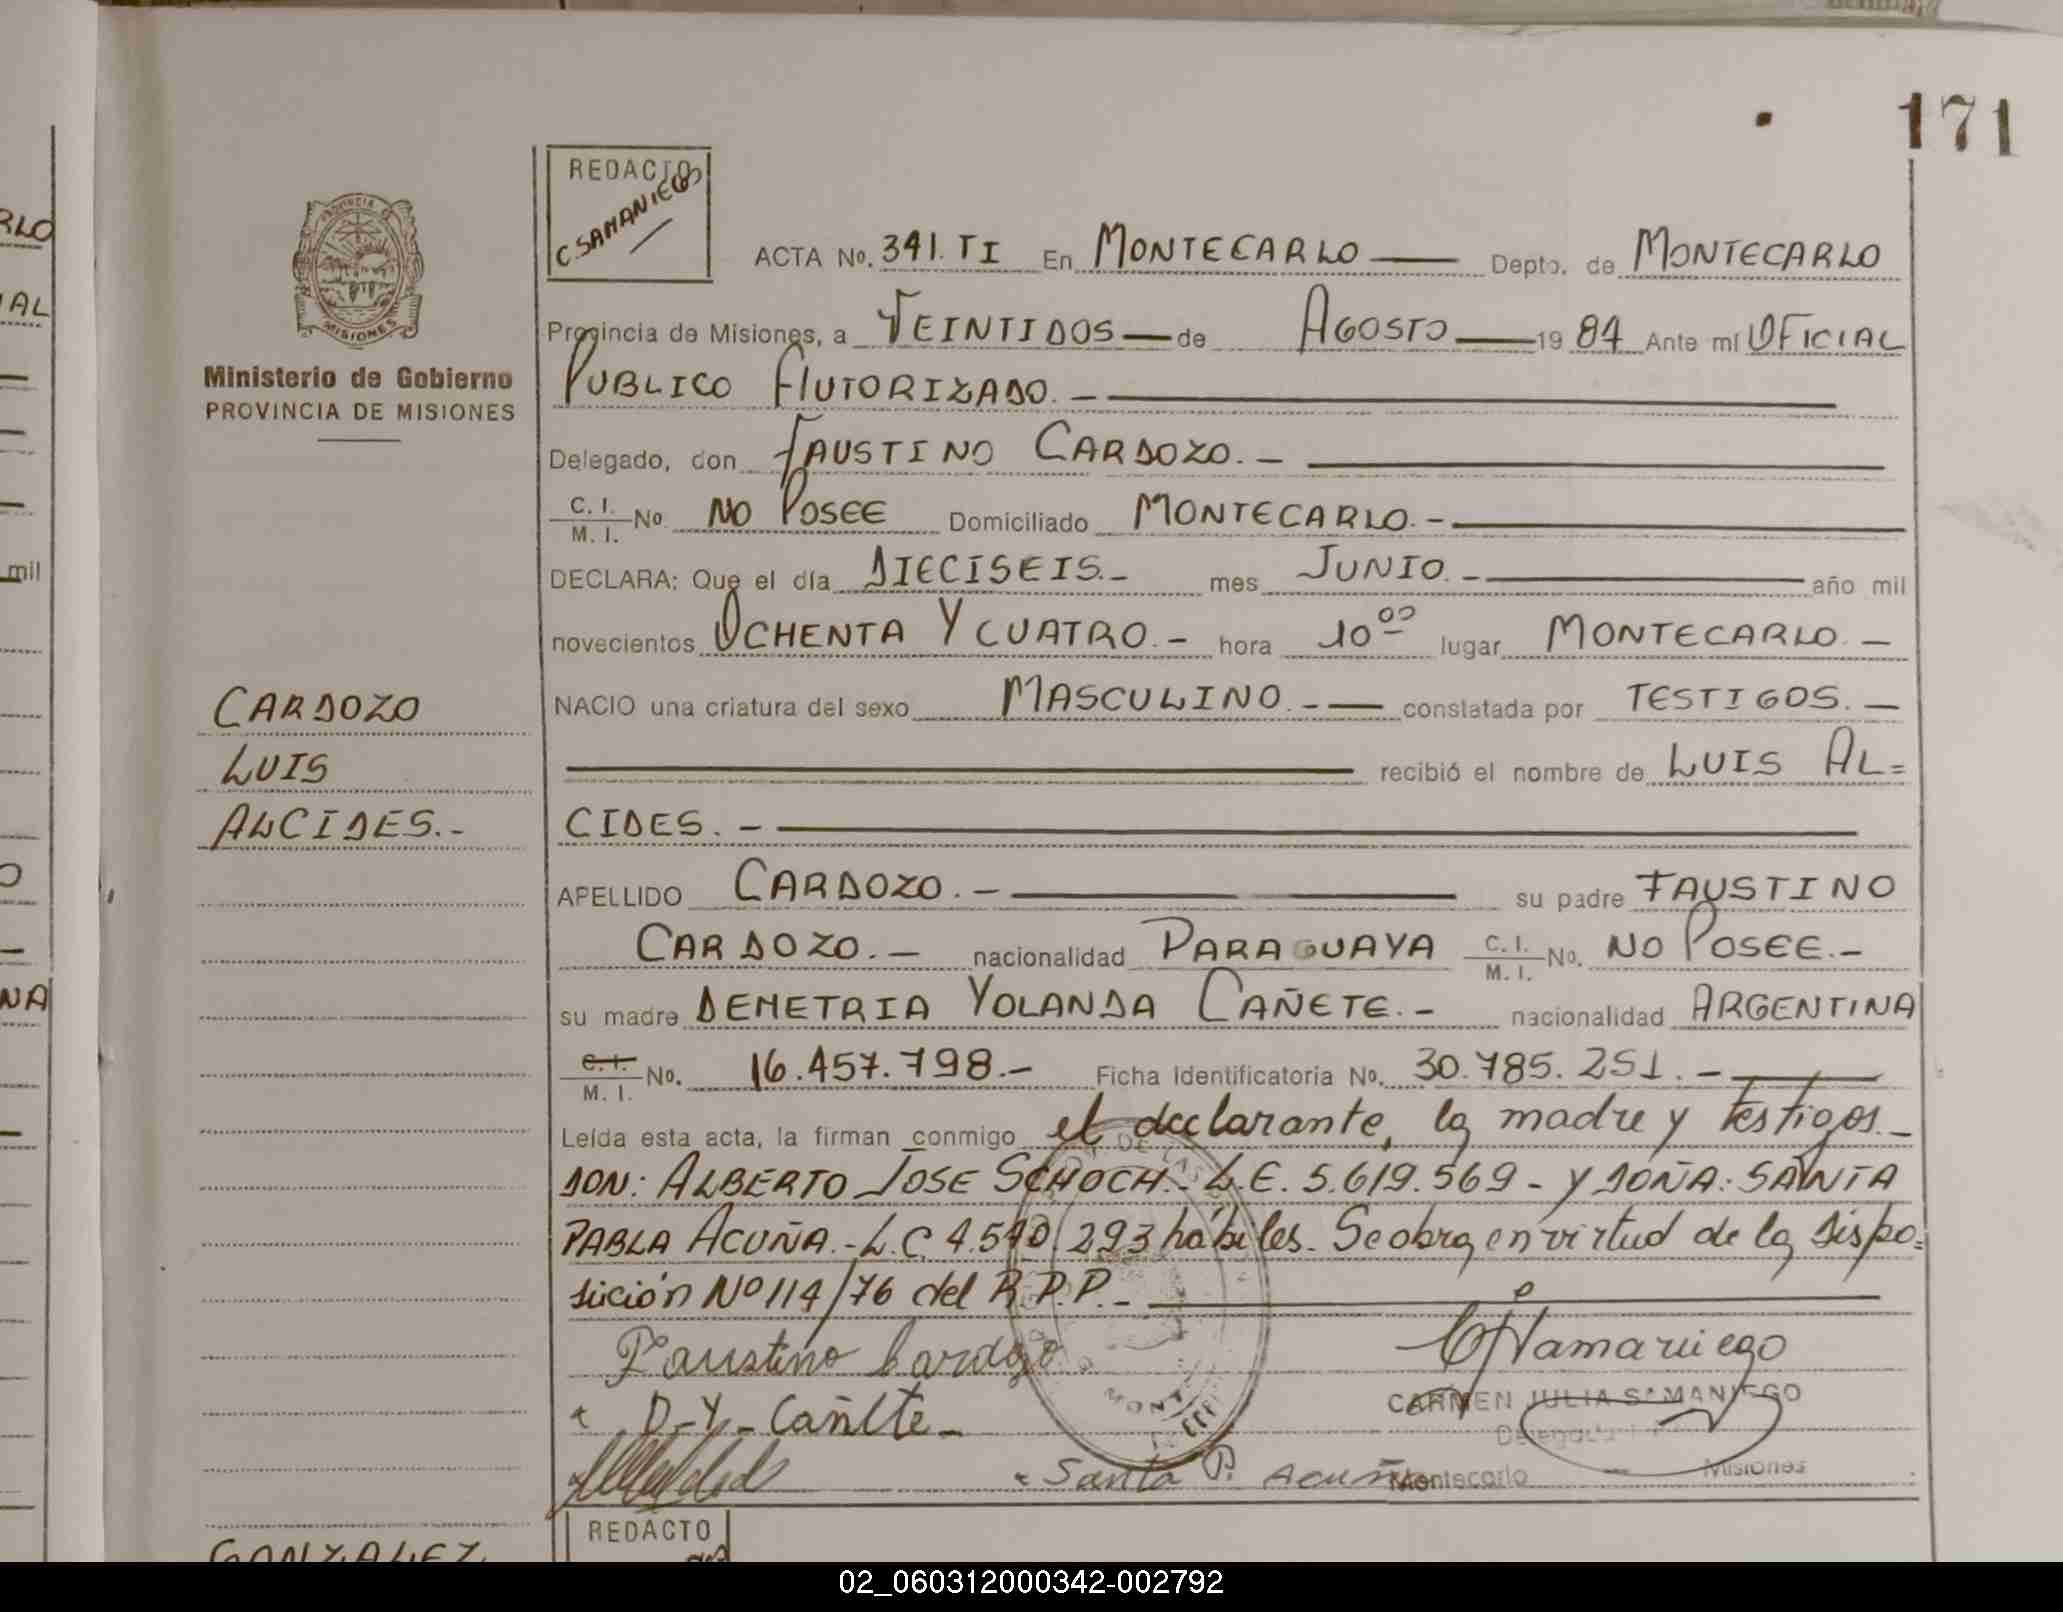 171
REDACTO
C. SAMANIEGO
PROVINCIA DE
MISIONES
Ministerio de Gobierno
PROVINCIA DE MISIONES
ACTA No. 341. TI En MONTECARLO Depto. de MONTECARLO
Provincia de Misiones, a VEINTIDOS de AGOSTO 19 84 Ante mí OFICIAL
PUBLICO AUTORIZADO. -
Delegado, don FAUSTINO CARDOZO. -
C. I. / M. I. No. NO POSEE Domiciliado MONTECARLO. -
DECLARA: Que el día DIECISEIS. - mes JUNIO. - año mil
novecientos OCHENTA Y CUATRO. - hora 10 00 lugar MONTECARLO. -
NACIO una criatura del sexo MASCULINO. - constatada por TESTIGOS. -
recibió el nombre de LUIS AL=
CIDES. -
APELLIDO CARDOZO. - su padre FAUSTINO
CARDOZO. - nacionalidad PARAGUAYA C. I. / M. I. No. NO POSEE. -
su madre DEMETRIA YOLANDA CAÑETE. - nacionalidad ARGENTINA
C. I. / M. I. No. 16.457.798. - Ficha Identificatoria No. 30.785.251. -
Leída esta acta, la firman conmigo el declarante, la madre y testigos. -
DON: ALBERTO JOSE SCHOCH. - L.E. 5.619.569 - Y DOÑA: SANTA
PABLA ACUÑA. - L.C. 4.540.293 hábiles. Se obra en virtud de la dispo=
sición Nº 114/76 del R.P.P. -
Faustino Cardozo
CSamaniego
CARMEN JULIA SAMANIEGO
D-Y- Cañete -
Delegada
Santa P. Acuña
Montecarlo Misiones
CARDOZO
LUIS
ALCIDES. -
REDACTO
GONZALEZ
RLO
IAL
mil
NA
02_060312000342-002792